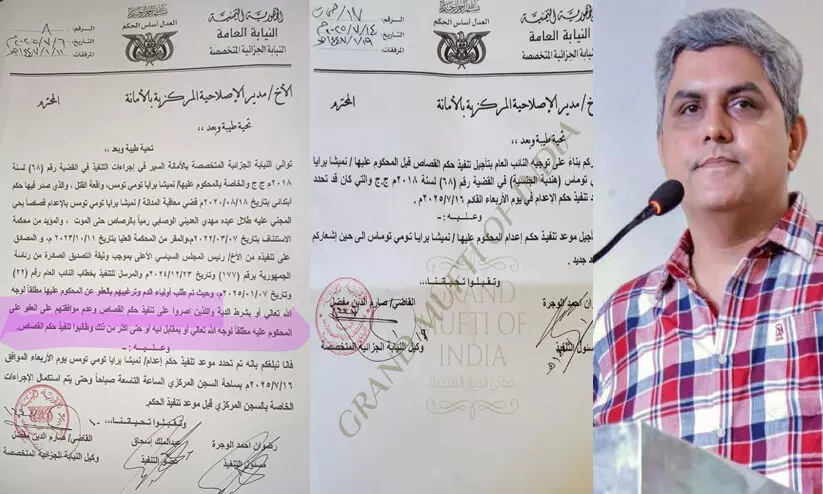 الجمهورية اليمنية
النيابة العامة
النيابة الجزائية المتخصصة
العدل أساس الحكم
الرقم: ٨
التاريخ: ٢٠٢٥/٧/٦م
المرفقات:
الأخ/ مدير الإصلاحية المركزية بالأمانة المحترم
تحية طيبة وبعد ،،
توالي النيابة الجزائية المتخصصة بالأمانة السير في إجراءات التنفيذ في القضية رقم (٦٨) لسنة
٢٠١٨م ج.ج والخاصة بالمحكوم عليها/ نميشا برايا تومي تومس، واقعة القتل ، والذي صدر فيها حكم
ابتدائي بتاريخ ٢٠٢٠/٠٨/١٨م قضى معاقبة المدانة / نميشا برايا تومي تومس بالإعدام قصاصاً بحق
المجني عليه طلال عبده مهدي العديني الوصابي رمياً بالرصاص حتى الموت ، والمؤيد من محكمة
الاستئناف بتاريخ ٢٠٢٢/٠٣/٠٧م والمقر من المحكمة العليا بتاريخ ٢٠٢٣/١٠/١١م ، والمصادق
على تنفيذه من الأخ/ رئيس المجلس السياسي الأعلى بموجب وثيقة التصديق الصادرة من رئاسة
الجمهورية برقم (١٧٧) وتاريخ ٢٠٢٤/١٢/٢٣م والمرسل للتنفيذ بخطاب النائب العام رقم (٢٢)
وتاريخ ٢٠٢٥/٠١/٠٧م، وحيث تم طلب أولياء الدم وترغيبهم بالعفو عن المحكوم عليها مطلقاً لوجه
الله تعالى أو بشرط الدية واللذين أصروا على تنفيذ حكم القصاص وعدم موافقتهم على العفو على
المحكوم عليه مطلقاً لوجه الله تعالى أو بمقابل ديه أو حتى أكثر من ذلك وطالبوا تنفيذ حكم القصاص.
وعليه :-
فإننا نبلغكم بأنه تم تحدد موعد تنفيذ حكم إعدام/ نميشا برايا تومي تومس يوم الأربعاء الموافق
٢٠٢٥/٧/١٦م بساحة السجن المركزي الساعة التاسعة صباحاً وحتى يتم استكمال الإجراءات
الخاصة بالسجن المركزي قبل موعد تنفيذ الحكم.
وتقبلوا تحياتنا،،،
رضوان احمد الوجرة
مسئول التنفيذ
عبدالملك إسحاق
عضو التنفيذ
القاضي/ صارم الدين مفضل
وكيل النيابة الجزائية المتخصصة
الجمهورية اليمنية
النيابة العامة
النيابة الجزائية المتخصصة
العدل أساس الحكم
الرقم: ١٧
التاريخ: ٢٠٢٥/٧/١٤م
١٤٤٧/١/١٩هـ
المرفقات:
خ/ مدير الإصلاحية المركزية بالأمانة المحترم
تحية طيبة وبعد ،،
كم بناءً على توجيه النائب العام بتأجيل تنفيذ حكم القصاص قبل المحكوم عليها / نميشا برايا
ي توماس (هندية الجنسية) في القضية رقم (٦٨) لسنة ٢٠١٨م ج.ج والتي كان قد تحدد
تنفيذ حكم الإعدام في يوم الأربعاء القادم ٢٠٢٥/٧/١٦م.
وعليه :-
أجيل موعد تنفيذ حكم إعدام المحكوم عليها / نميشا برايا تومي توماس الى حين إشعاركم
د جديد .
وتقبلوا تحياتنا،،،
وان احمد الوجرة
سئول التنفيذ
القاضي/ صارم الدين مفضل
وكيل النيابة الجزائية المتخصصة
GRAND MUFTI OF INDIA
GRAND
MUFTI OF
INDIA
مفتي الديار الهندية